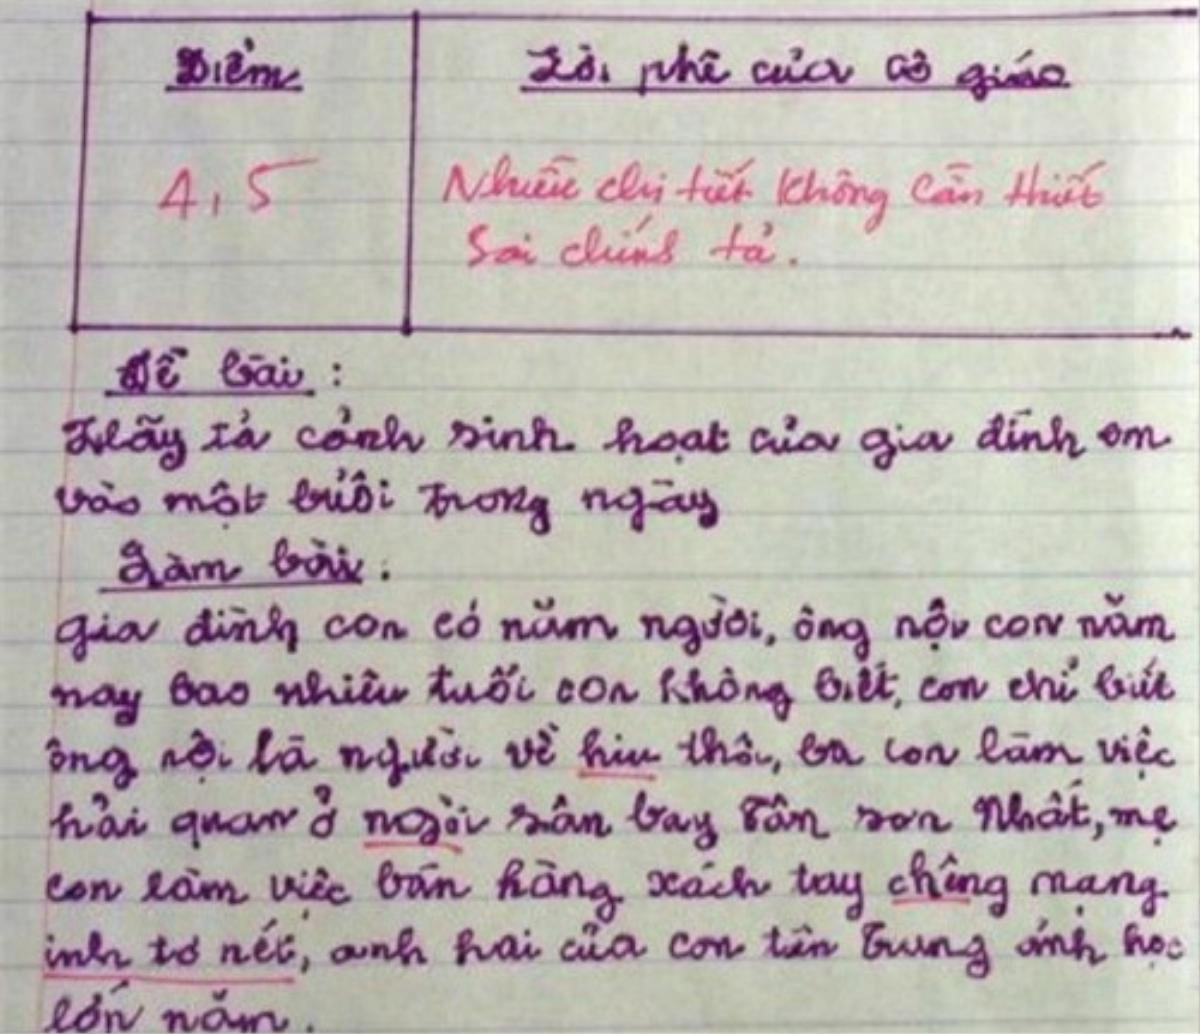 Điểm
Lời phê của cô giáo
4,5
Nhiều chi tiết không cần thiết
Sai chính tả.
Đề bài :
Hãy tả cảnh sinh hoạt của gia đình em
vào một buổi trong ngày
Làm bài :
gia đình con có năm người, ông nội con năm
nay bao nhiêu tuổi con không biết, con chỉ biết
ông nội là người về hiu thôi, ba con làm việc
hải quan ở ngòi sân bay Tân sơn Nhất, mẹ
con làm việc bán hàng xách tay chêng mạng
inh tơ nét, anh hai của con tên Trung ảnh học
lớn năm.